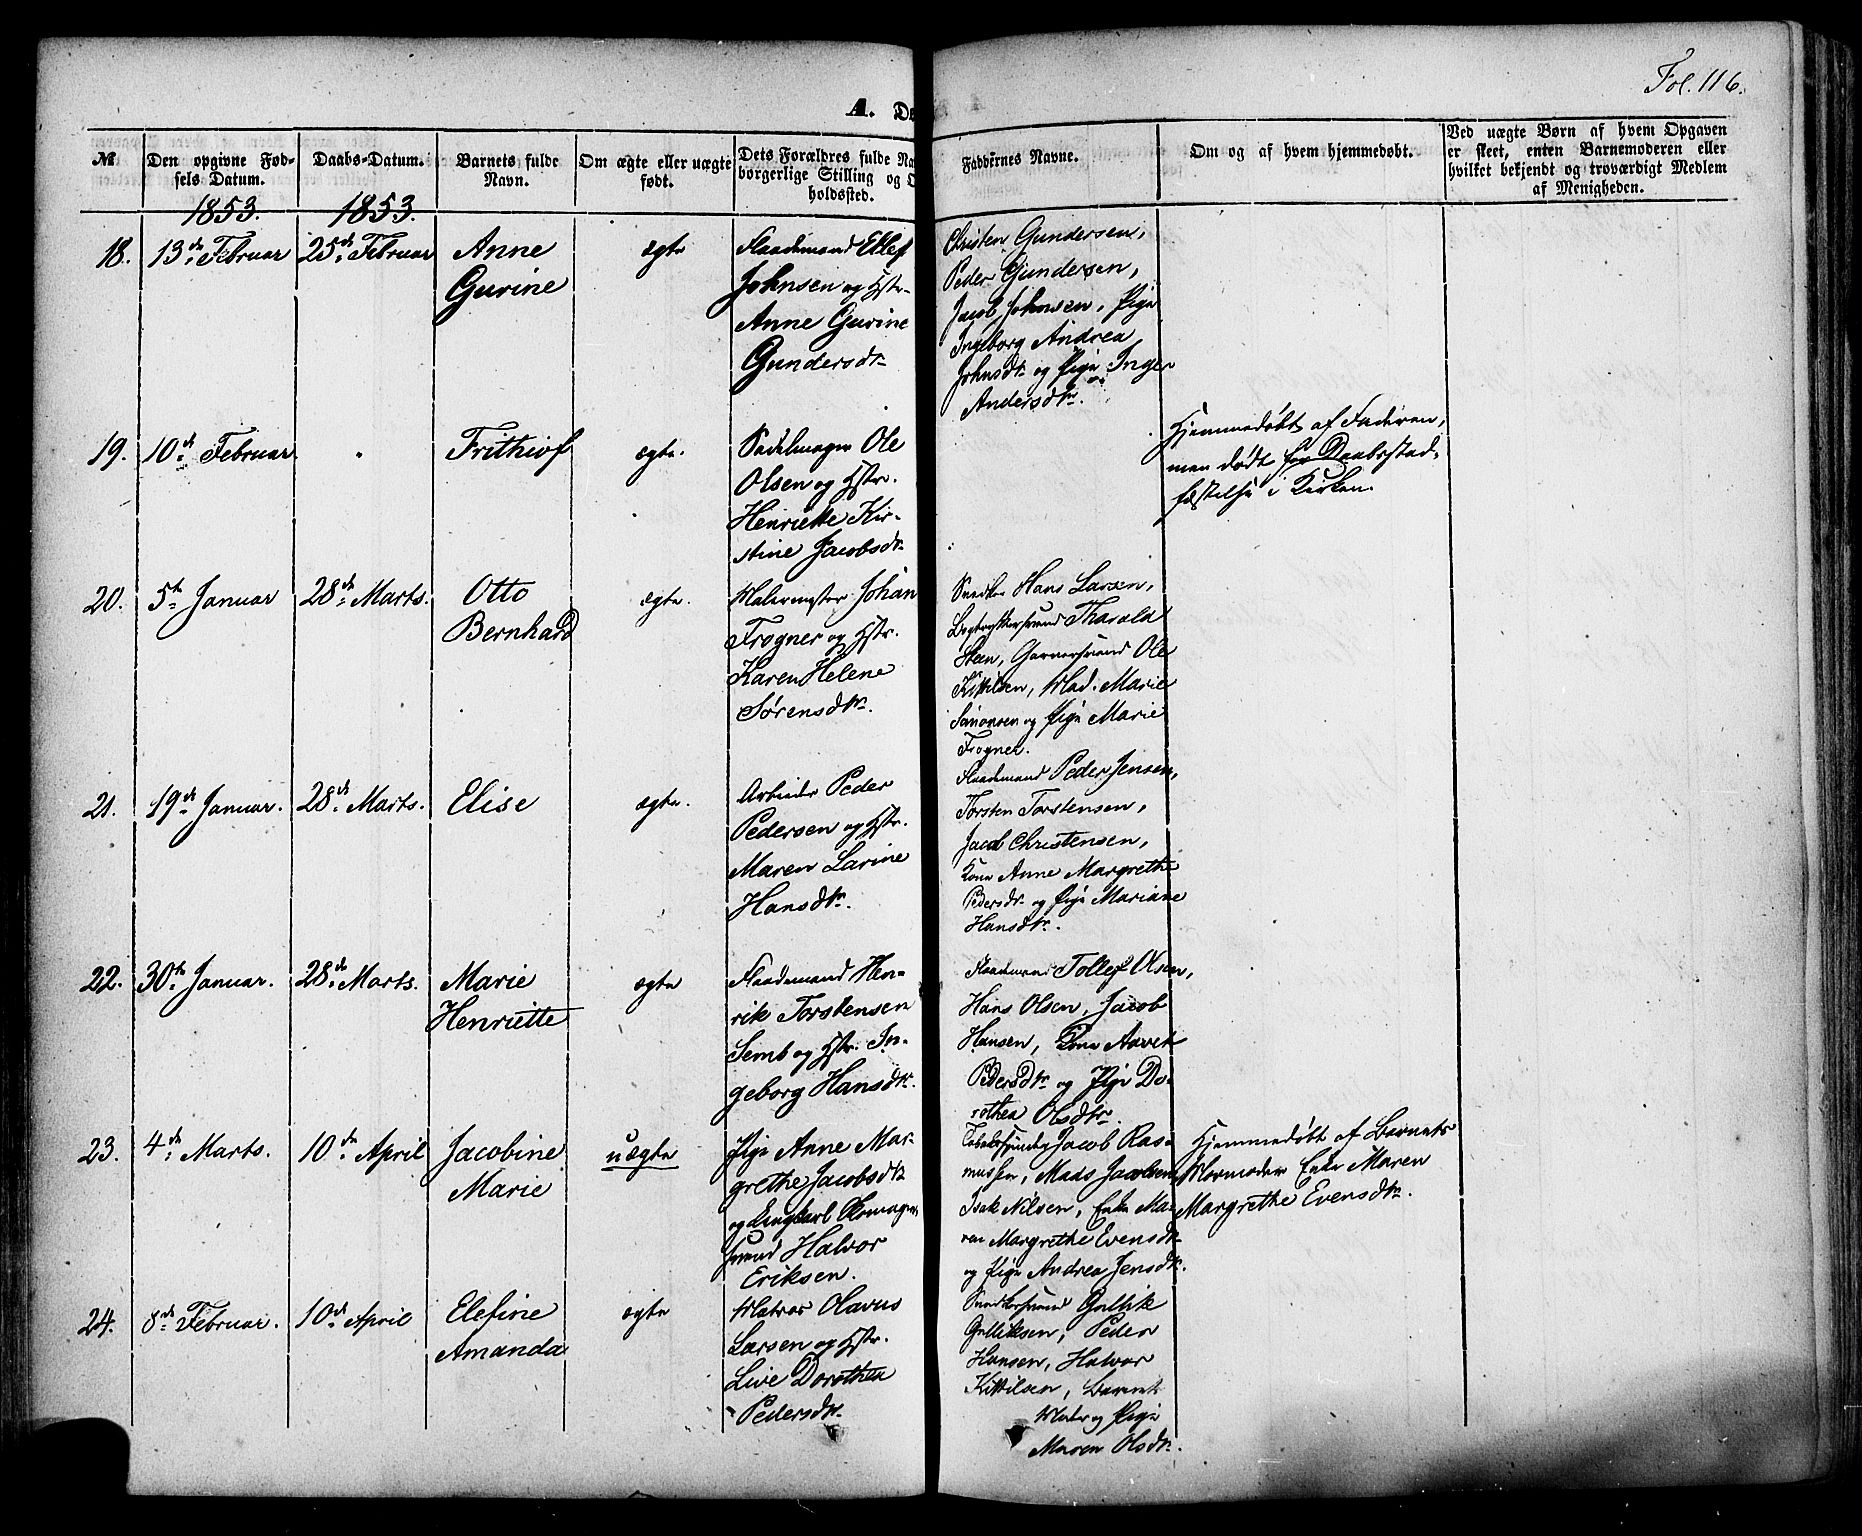 Fol. 116.
A. De
No
Den opgivne Fød-
sels Datum.
Daabs-Datum.
Barnets fulde
Navn.
Om ægte eller uægte
født.
Dets Forældres fulde Na
borgerlige Stilling og O
holdssted.
Faddernes Navne.
Om og af hvem hjemmedøbt.
Ved uægte Børn af hvem Opgaven
er skeet, enten Barnemoderen eller
hvilket bekjendt og troværdigt Medlem
af Menigheden.
1853.
1853.
18.
13de Februar
25de Februar
Anne
Gurine
ægte
Flaademand Ellef
Johnsen og Hstr.
Anne Gurine
Gundersdtr
Christen Gundersen,
Peder Gundersen,
Jacob Johnsen, Pige
Ingeborg Andrea
Johnsdtr og Pige Inger
Andersdtr.
19.
10de Februar
"
Frithiof
ægte.
Sadelmager Ole
Olsen og Hstr.
Henriette Kir-
stine Jacobsdtr
Hjemmedøbt af Faderen,
men dødt før Daabsstad-
fæstelse i Kirken.
20.
5te Januar
28de Marts.
Otto
Bernhard
ægte.
Malermester Johan
Frogner og Hstr.
Karen Helene
Sørensdtr.
Snedker Hans Larsen,
Bogtrykkersvend Tharald
Steen, Garversvend Ole
Kittilsen, Mad. Marie
Simonsen og Pige Marie
Frogner.
21.
19de Januar.
28de Marts.
Elise
ægte.
Arbeider Peder
Pedersen og Hstr.
Maren Larine
Hansdtr.
Flaademand Peder Jensen,
Torsten Torstensen,
Jacob Christensen,
Kone Anne Margrethe
Pedersdtr og Pige Mariane
Hansdtr.
22.
30te Januar.
28de Marts.
Marie
Henriette
ægte
Flaademand Hen-
rik Torstensen
Semb og Hstr. In-
geborg Hansdtr.
Flaademand Tollef Olsen,
Hans Olsen, Jacob
Hansen, Kone
Pedersdtr og Pige Do-
rothea Olsdtr.
23.
4de Marts.
10de April
Jacobine
Marie
uægte
Pige Anne Mar-
grethe Jacobsdtr
og Ungkarl Skomager-
svend Halvor
Eriksen.
Jacob Ras-
mussen, Mads Jacobsen
Isak Nilsen, Enke Ma-
ren Margrethe Evensdtr
og Pige Andrea Jensdtr.
Hjemmedøbt af Barnets
Mormoder Enke Maren
Margrethe Evensdtr.
24.
8de Februar.
10de April
Elefine
Amanda
ægte
Matros Olavus
Larsen og Hstr.
Live Dorothea
Pedersdtr.
Snedkersvend Gullik
Gulliksen, Peder
Hansen, Halvor
Kittilsen, Barnets
Moder og Pige
Maren Olsdtr.